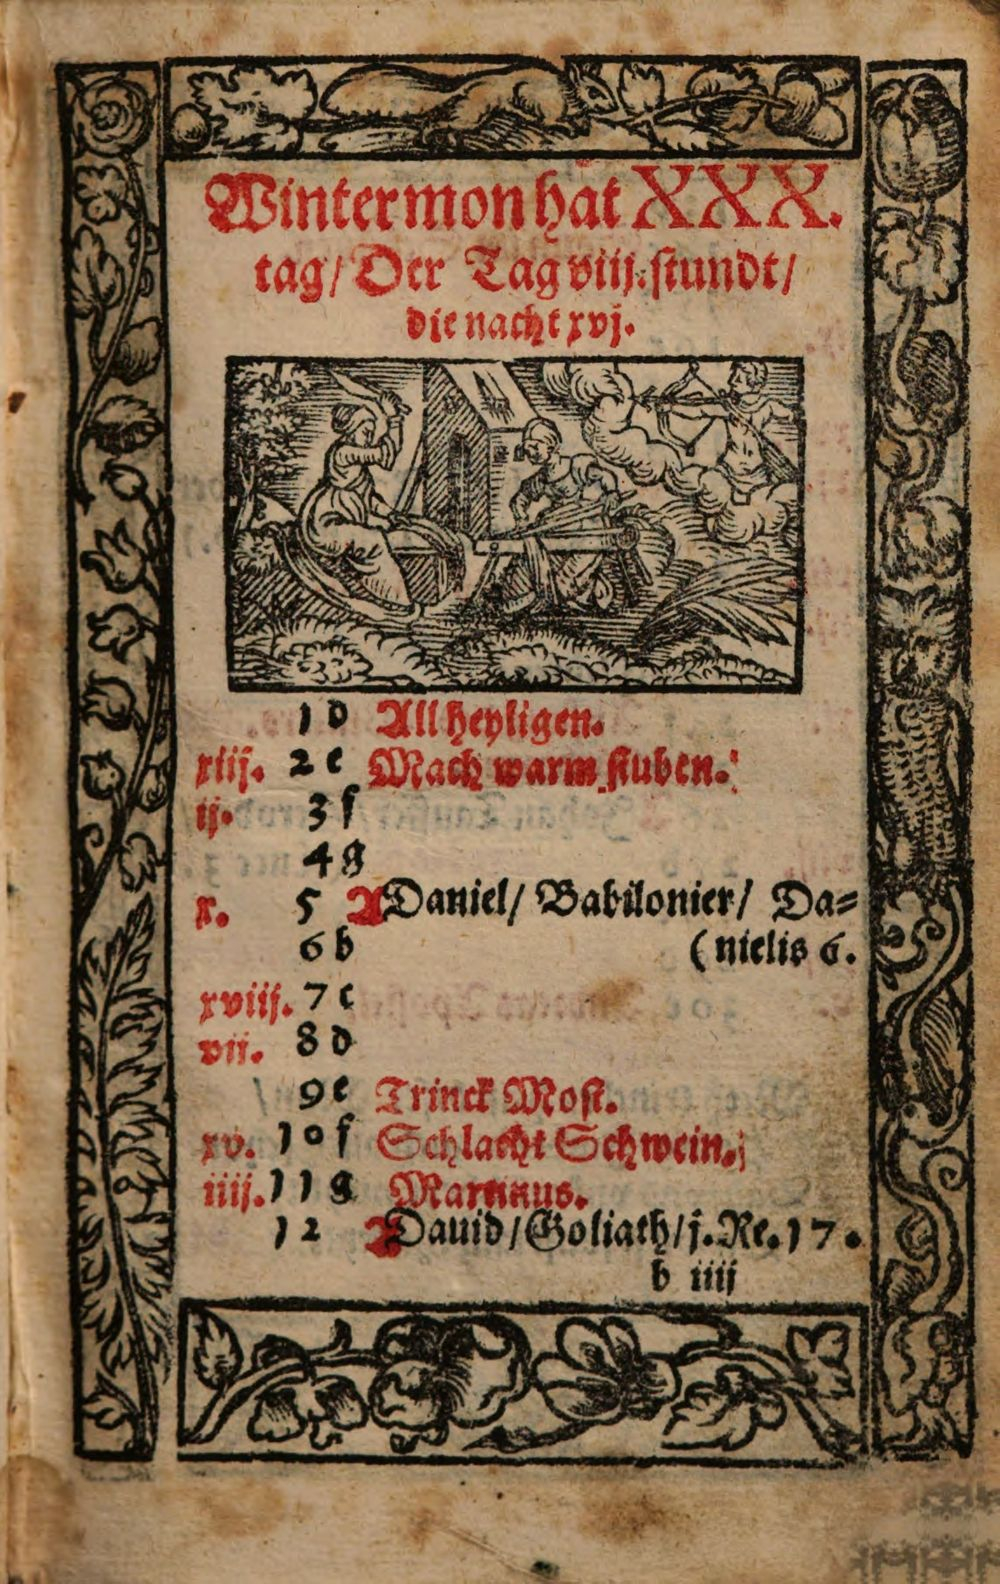 Wintermon hat XXX.
tag/ Der Tag viij. stundt/
die nacht xvj.
1 d All heyligen.
xiij. 2 e Mach warm stuben.
ij. 3 f
4 g
x. 5 A Daniel/ Babilonier/ Da=
6 b (nielis 6.
xviij. 7 c
vij. 8 d
9 e Trinck Most.
xv. 10 f Schlacht Schwein.
iiij. 11 g Martinus.
12 A Dauid/ Goliath/ j. Re. 17.
b iiij